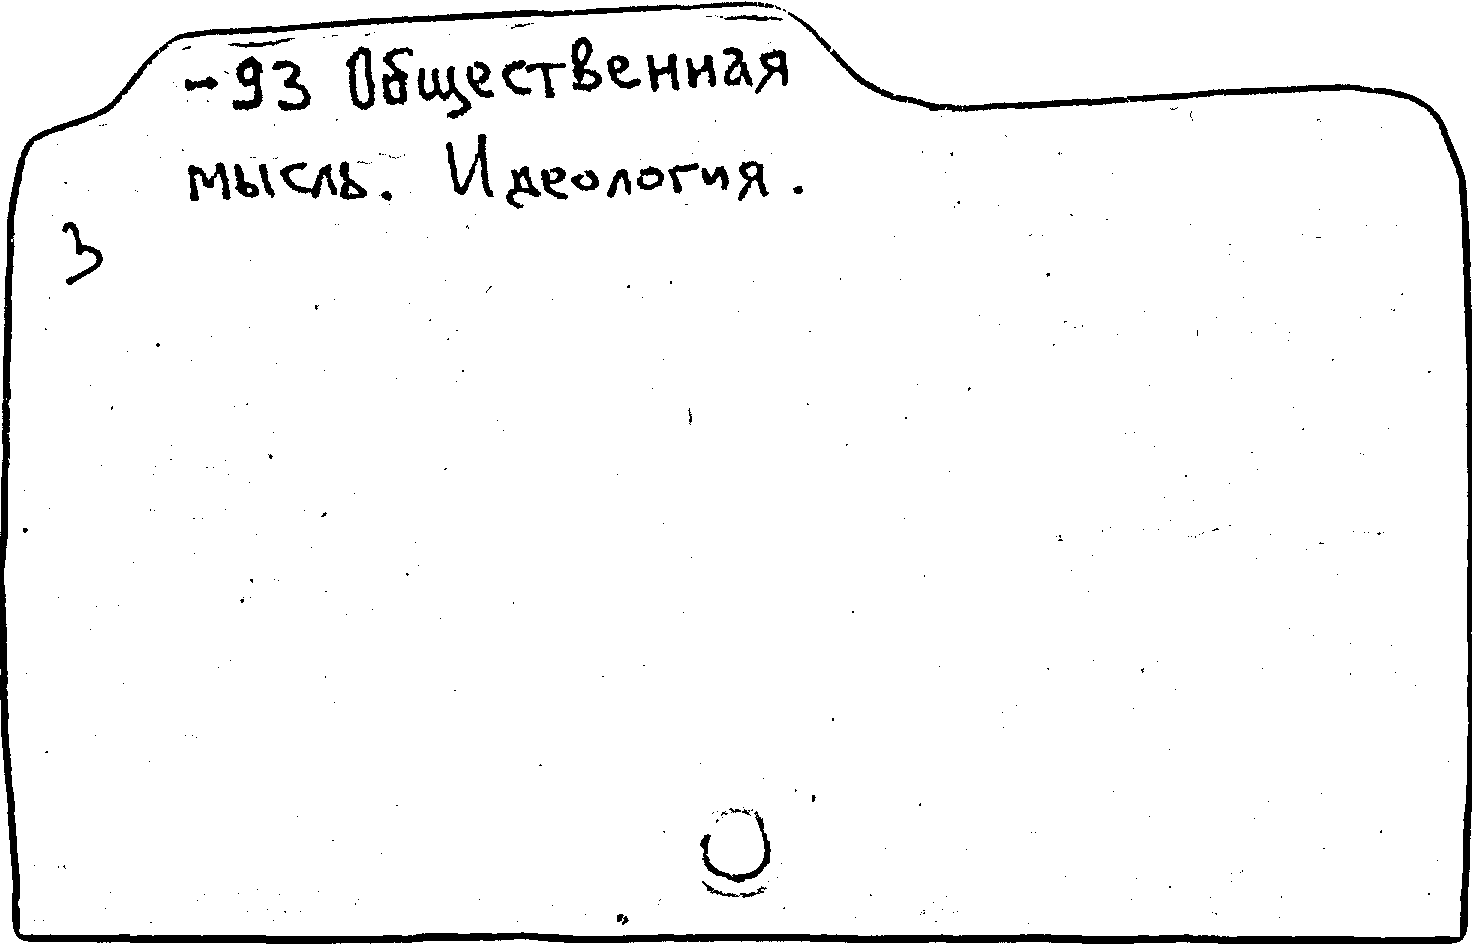 -93 Общественная
мысль. Идеология.
3